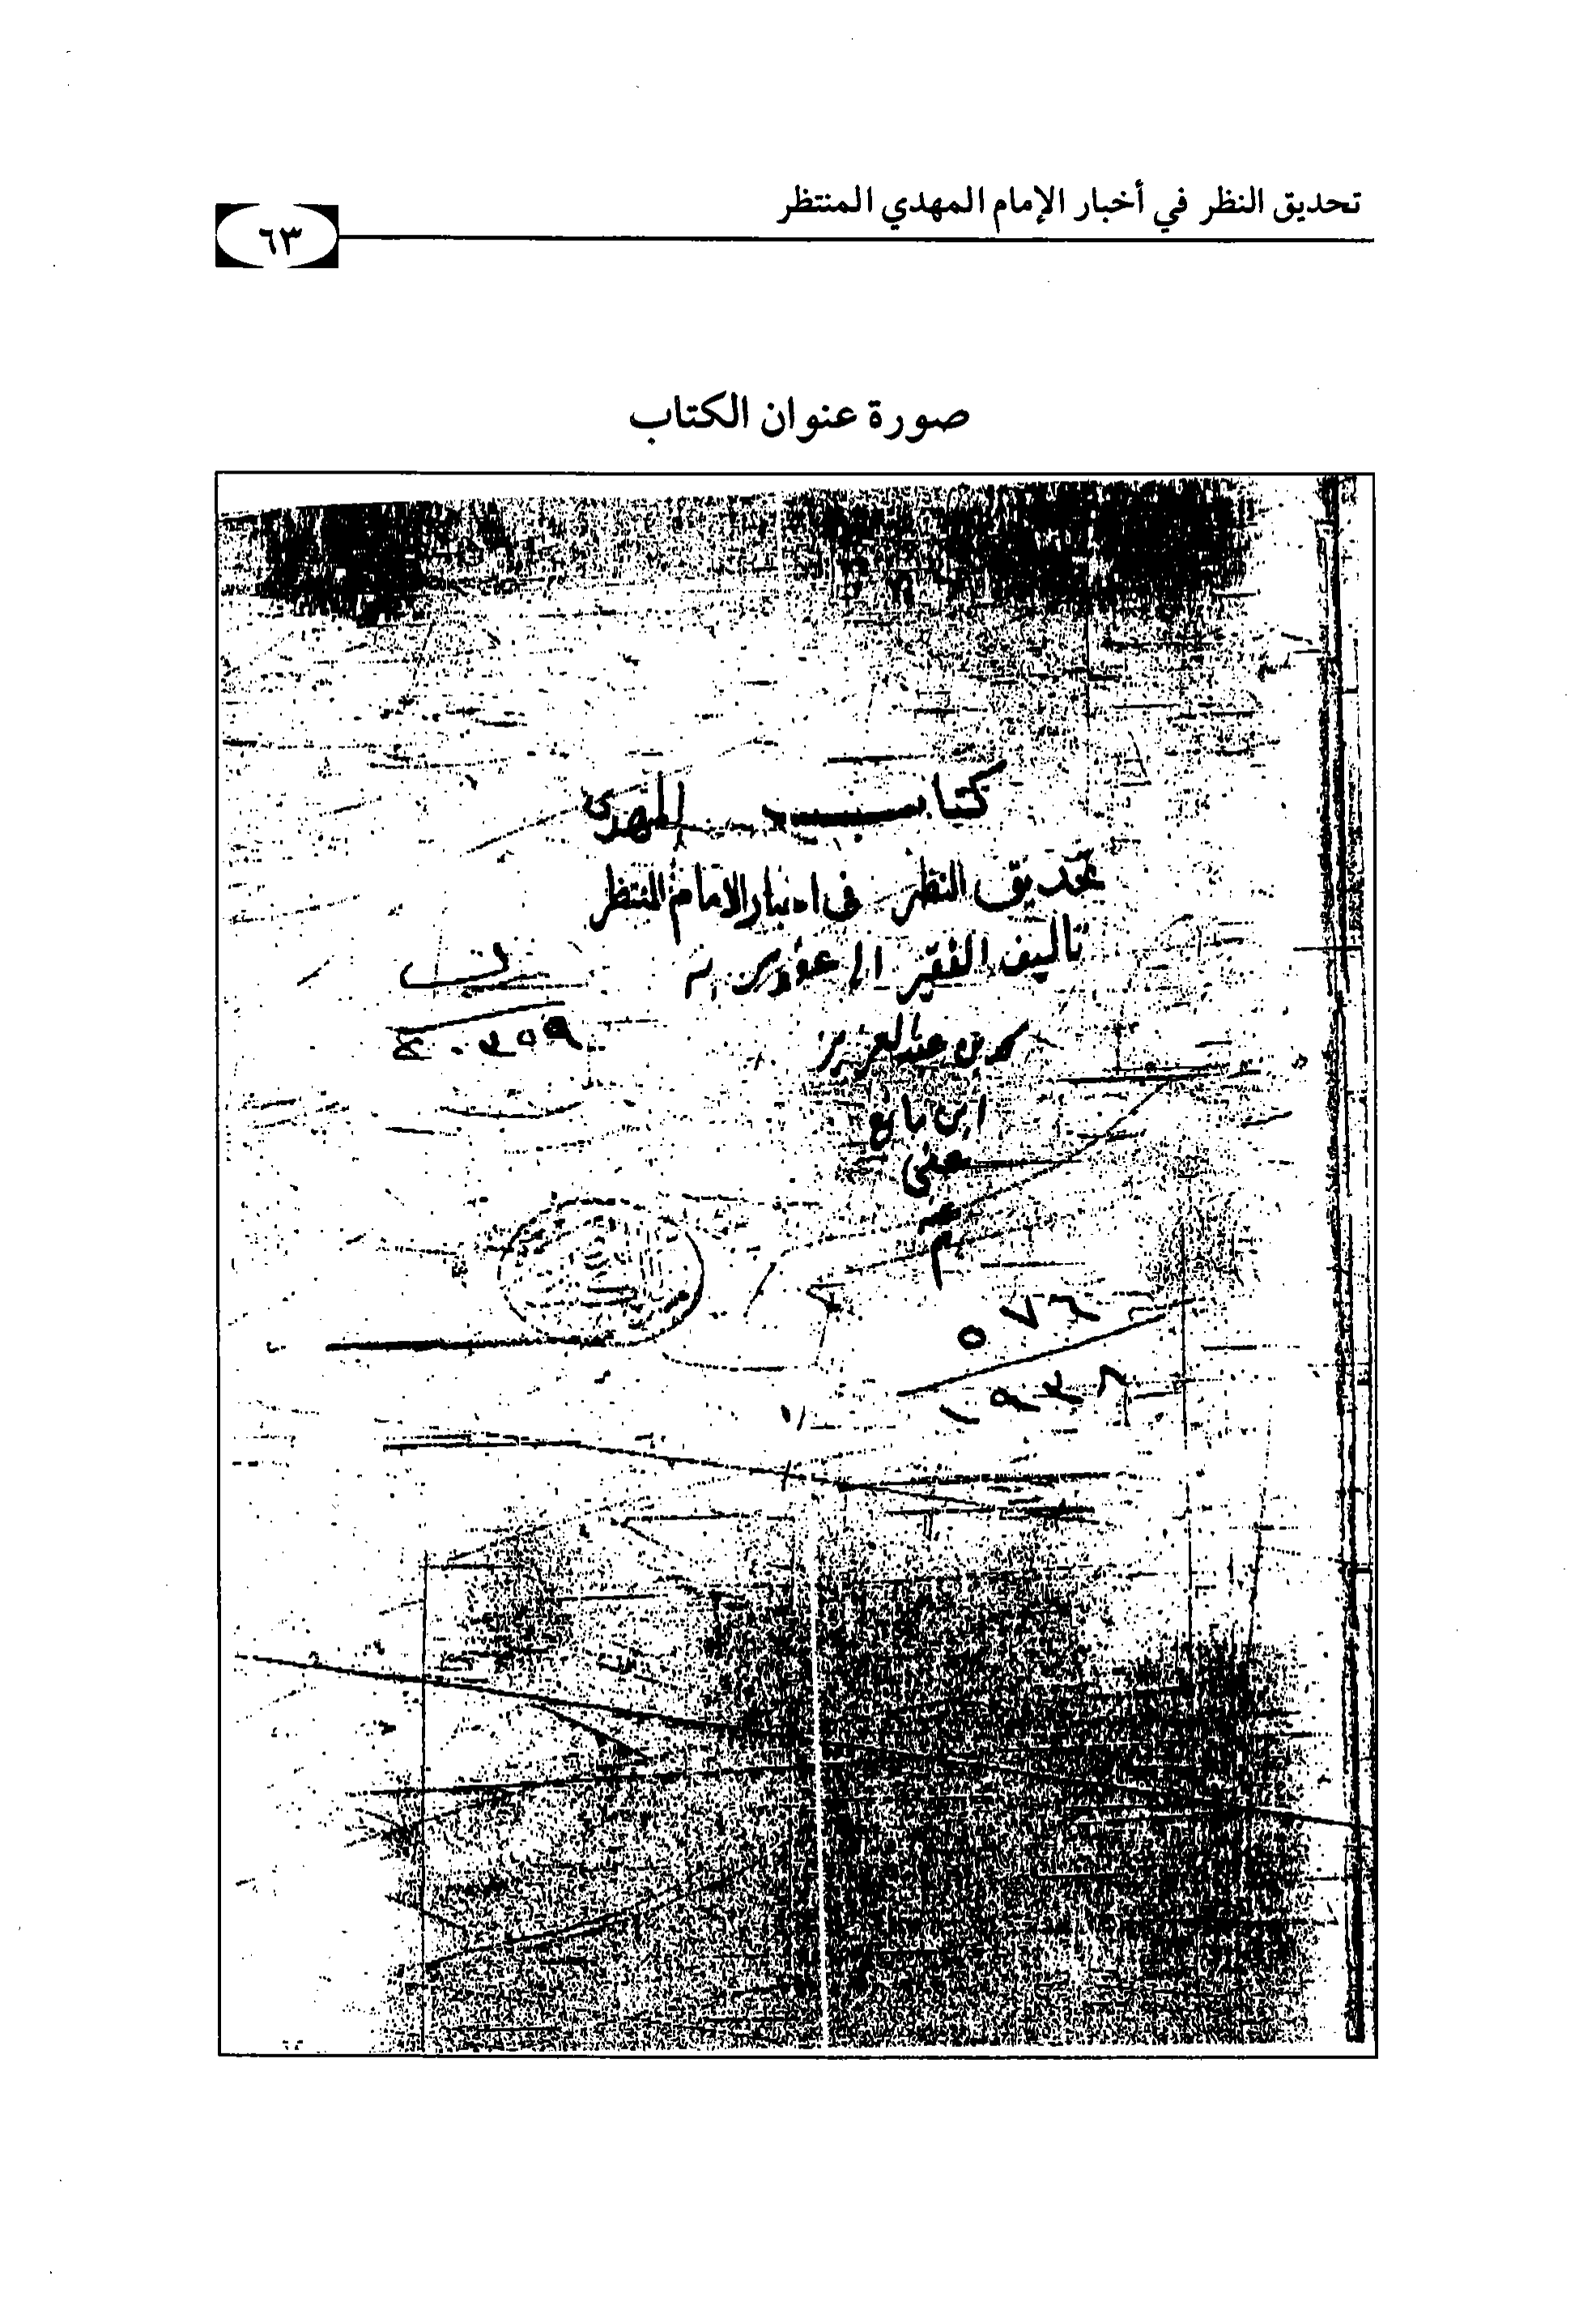 تحديق النظر في أخبار الإمام المهدي المنتظر
٦٣
صورة عنوان الكتاب
كتاب المهدي
تحديق النظر في اخبار الامام المنتظر
تاليف الفقير الى عفو
محمد بن عبد العزيز
ابن مانع
عفي
عنه
٥٧٦
١٩٣٨